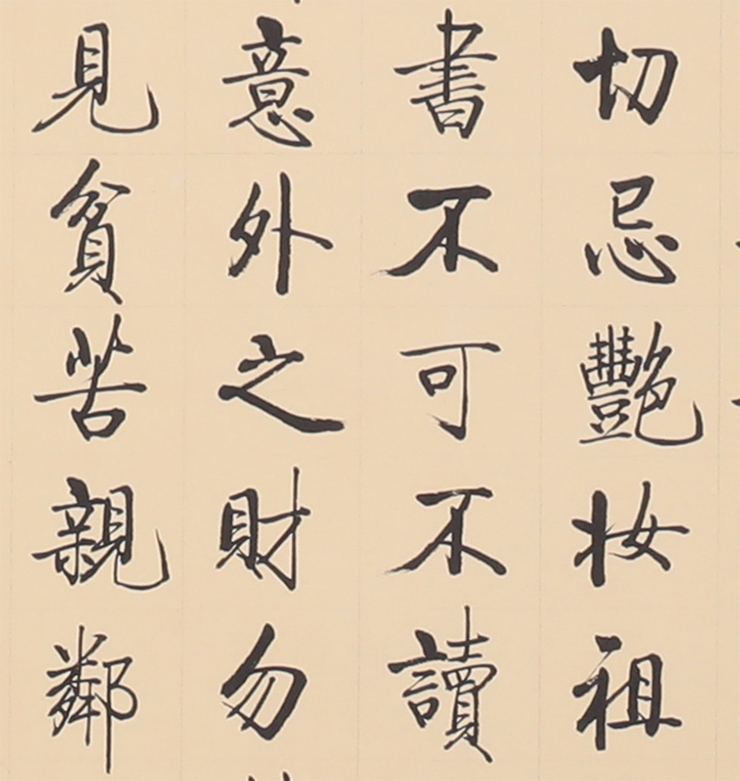 切忌艷妆祖
書不可不讀
意外之財勿
見貧苦親鄰